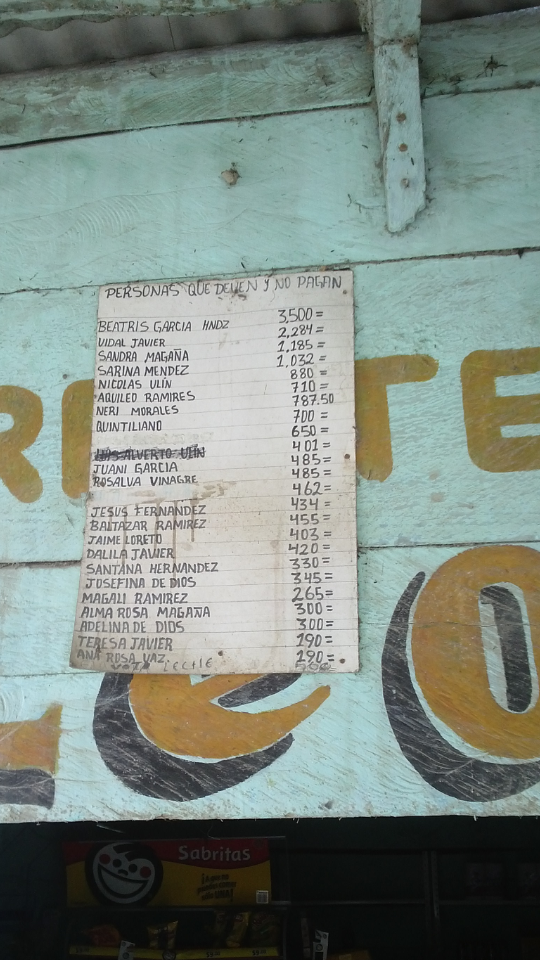 PERSONAS QUE DEVEN Y NO PAGAN
BEATRIS GARCIA HNDZ 3,500=
VIDAL JAVIER 2,284=
SANDRA MAGAÑA 1,185=
SARINA MENDEZ 1,032=
NICOLAS ULÍN 880=
AQUILEO RAMIRES 710=
NERI MORALES 787.50
QUINTILIANO 700=
650=
LUIS ALVERTO ULÍN 401=
JUANI GARCIA 485=
ROSALVA VINAGRE 485=
462=
JESUS FERNANDEZ 434=
BALTAZAR RAMIREZ 455=
JAIME LORETO 403=
DALILA JAVIER 420=
SANTANA HERNANDEZ 330=
JOSEFINA DE DIOS 345=
MAGALI RAMIREZ 265=
ALMA ROSA MAGAÑA 300=
ADELINA DE DIOS 300=
TERESA JAVIER 190=
ANA ROSA VAZ. 190=
TE
Leo
Sabritas